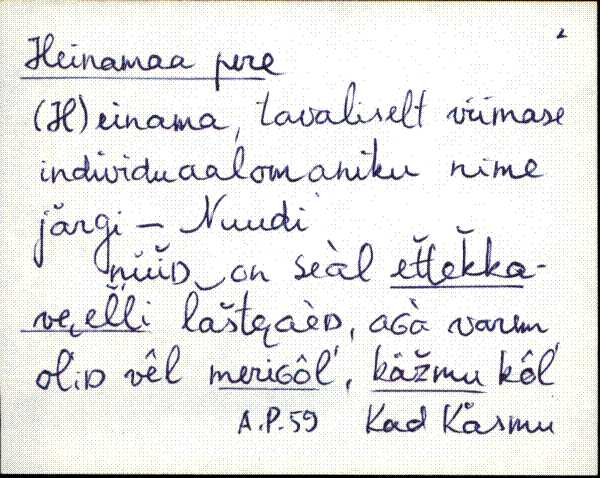 2
Heinamaa pere
(H)einama, tavaliselt viimase
individuaalomaniku nime
järgi – Nuudi
nüüD on seàl ettekka-
veelli lašteaèD, aGà varem
oliD vêl meriGôl', käžmu kôl'
A.P.59 Kad Käsmu